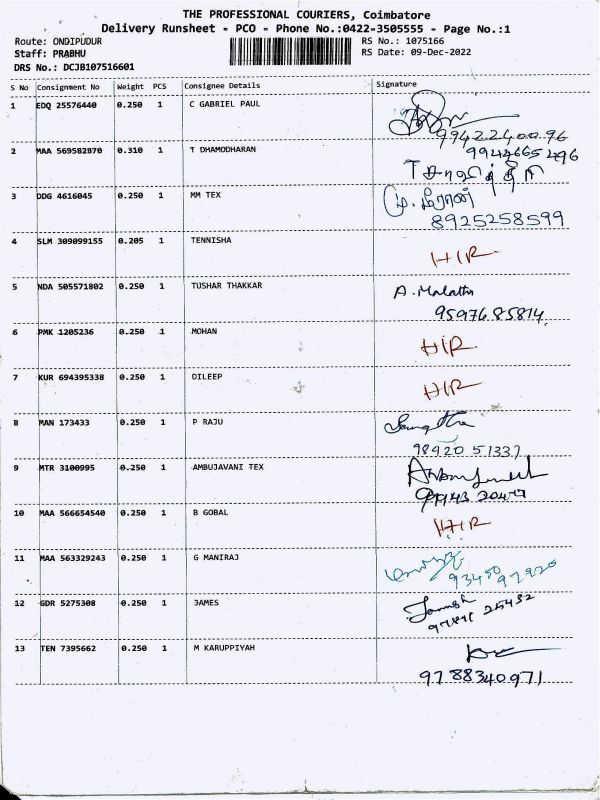 THE PROFESSIONAL COURIERS, Coimbatore
Delivery Runsheet - PCO - Phone No.:0422-3505555 - Page No.:1
Route: ONDIPUDUR RS No.: 1075166
Staff: PRABHU RS Date: 09-Dec-2022
DRS No.: DCJB107516601
S No Consignment No Weight PCS Consignee Details Signature
1 EDQ 25576440 0.250 1 C GABRIEL PAUL
9942240096
2 MAA 569582870 0.310 1 T DHAMODHARAN 9944665496
3 DDG 4616045 0.250 1 MM TEX
8925258599
4 SLM 309099155 0.205 1 TENNISHA H/R
5 NDA 505571802 0.250 1 TUSHAR THAKKAR A. Malathi
9597685814
6 PMK 1205236 0.250 1 MOHAN H/R
7 KUR 694395338 0.250 1 DILEEP H/R
8 MAN 173433 0.250 1 P RAJU
98420 51337
9 MTR 3100995 0.250 1 AMBUJAVANI TEX
10 MAA 566654540 0.250 1 B GOBAL H/R
11 MAA 563329243 0.250 1 G MANIRAJ
12 GDR 5275308 0.250 1 JAMES
13 TEN 7395662 0.250 1 M KARUPPIYAH
9788340971